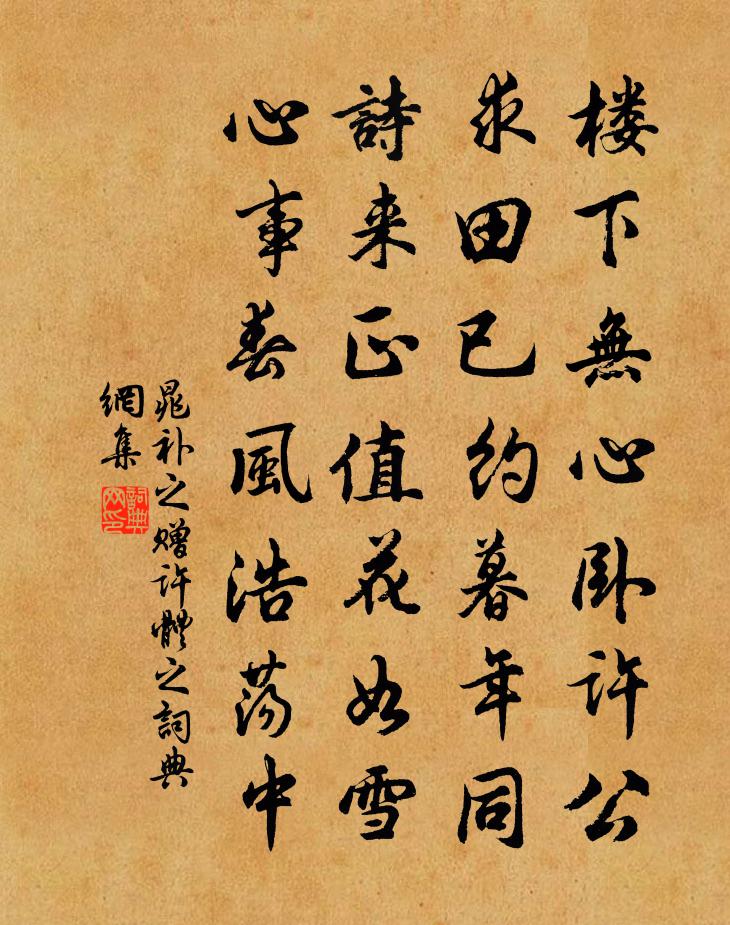 楼下無心卧许公
求田已约暮年同
詩来正值花如雪
心事春風浩荡中
晁补之赠许體之詞典
網集
詞典
网印